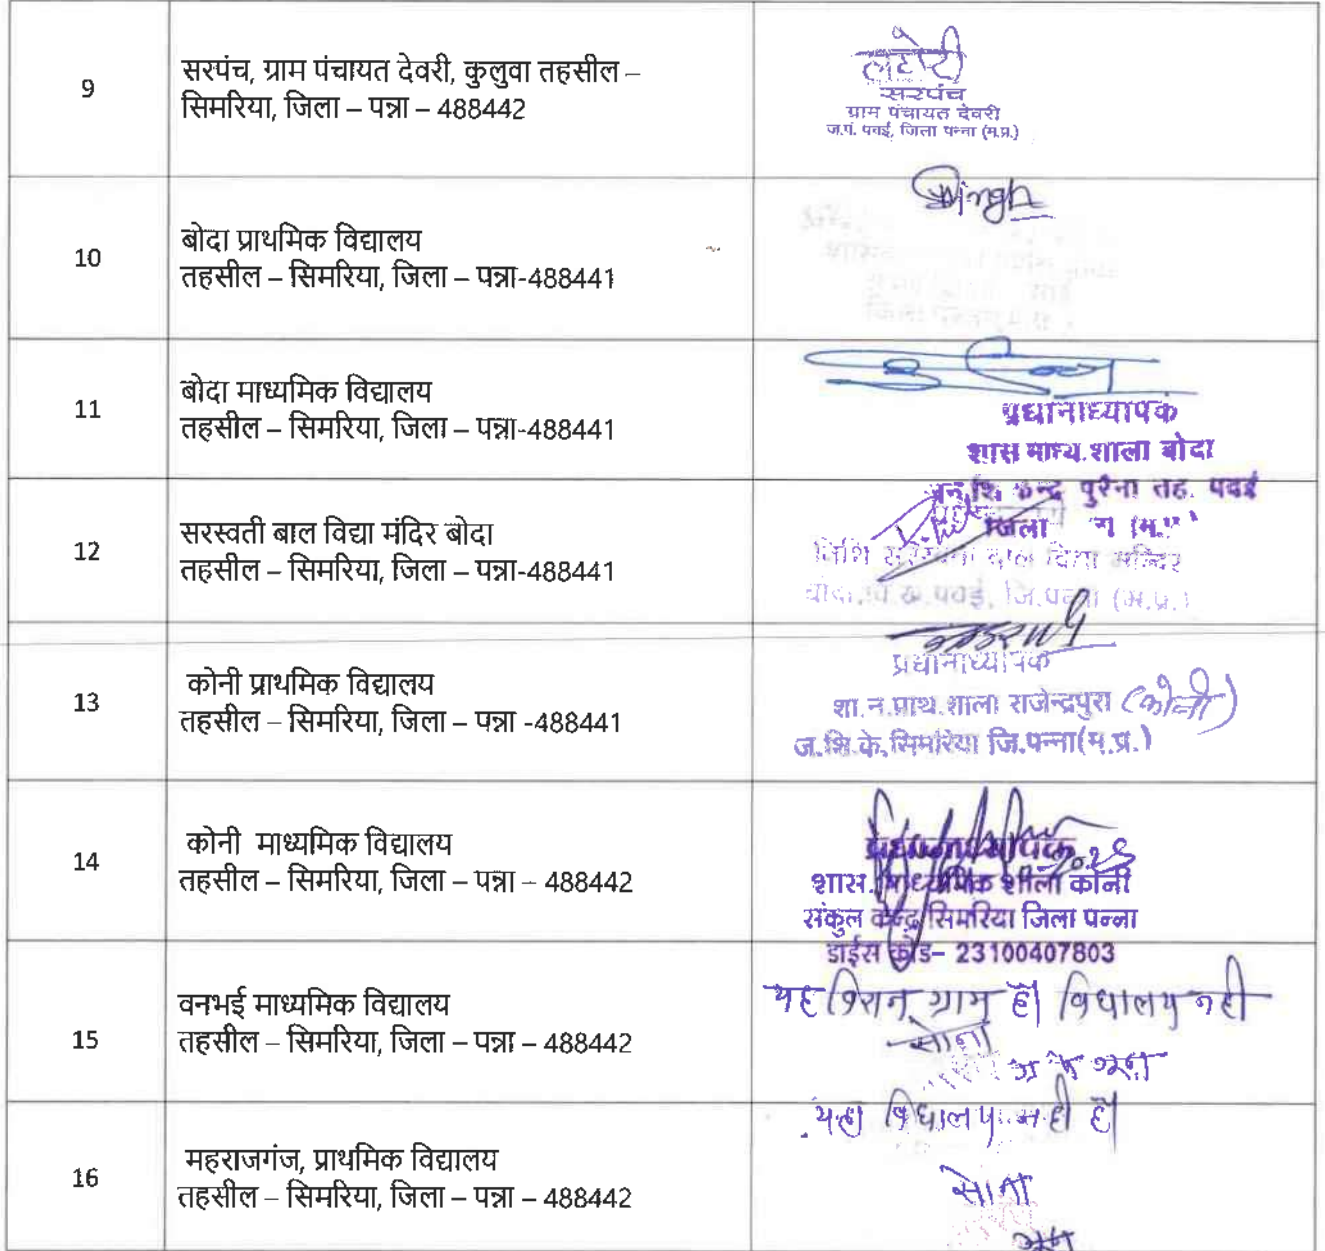 9
सरपंच, ग्राम पंचायत देवरी, कुलुवा तहसील –
सिमरिया, जिला – पन्ना – 488442
सरपंच
ग्राम पंचायत देवरी
ज.पं. पवई, जिला पन्ना (म.प्र.)
10
बोदा प्राथमिक विद्यालय
तहसील – सिमरिया, जिला – पन्ना-488441
Singh
11
बोदा माध्यमिक विद्यालय
तहसील – सिमरिया, जिला – पन्ना-488441
प्रधानाध्यापक
शास माध्य.शाला बोदा
केन्द्र पुरैना तह. पवई
जिला
12
सरस्वती बाल विद्या मंदिर बोदा
तहसील – सिमरिया, जिला – पन्ना-488441
बाल विद्या मन्दिर
बोदा, वि.ख.पवई, जि.पन्ना (म.प्र.)
13
कोनी प्राथमिक विद्यालय
तहसील – सिमरिया, जिला – पन्ना -488441
प्रधानाध्यापक
शा.न.प्राथ.शाला राजेन्द्रपुरा (कोनी)
ज.शि.के.सिमरिया जि.पन्ना(म.प्र.)
14
कोनी माध्यमिक विद्यालय
तहसील – सिमरिया, जिला – पन्ना – 488442
प्रधानाध्यापक
शास. माध्यमिक शाला कोनी
संकुल केन्द्र सिमरिया जिला पन्ना
डाईस कोड– 23100407803
15
वनभई माध्यमिक विद्यालय
तहसील – सिमरिया, जिला – पन्ना – 488442
यह ग्राम है विधालय नही
16
महराजगंज, प्राथमिक विद्यालय
तहसील – सिमरिया, जिला – पन्ना – 488442
यहा विधालय नही है